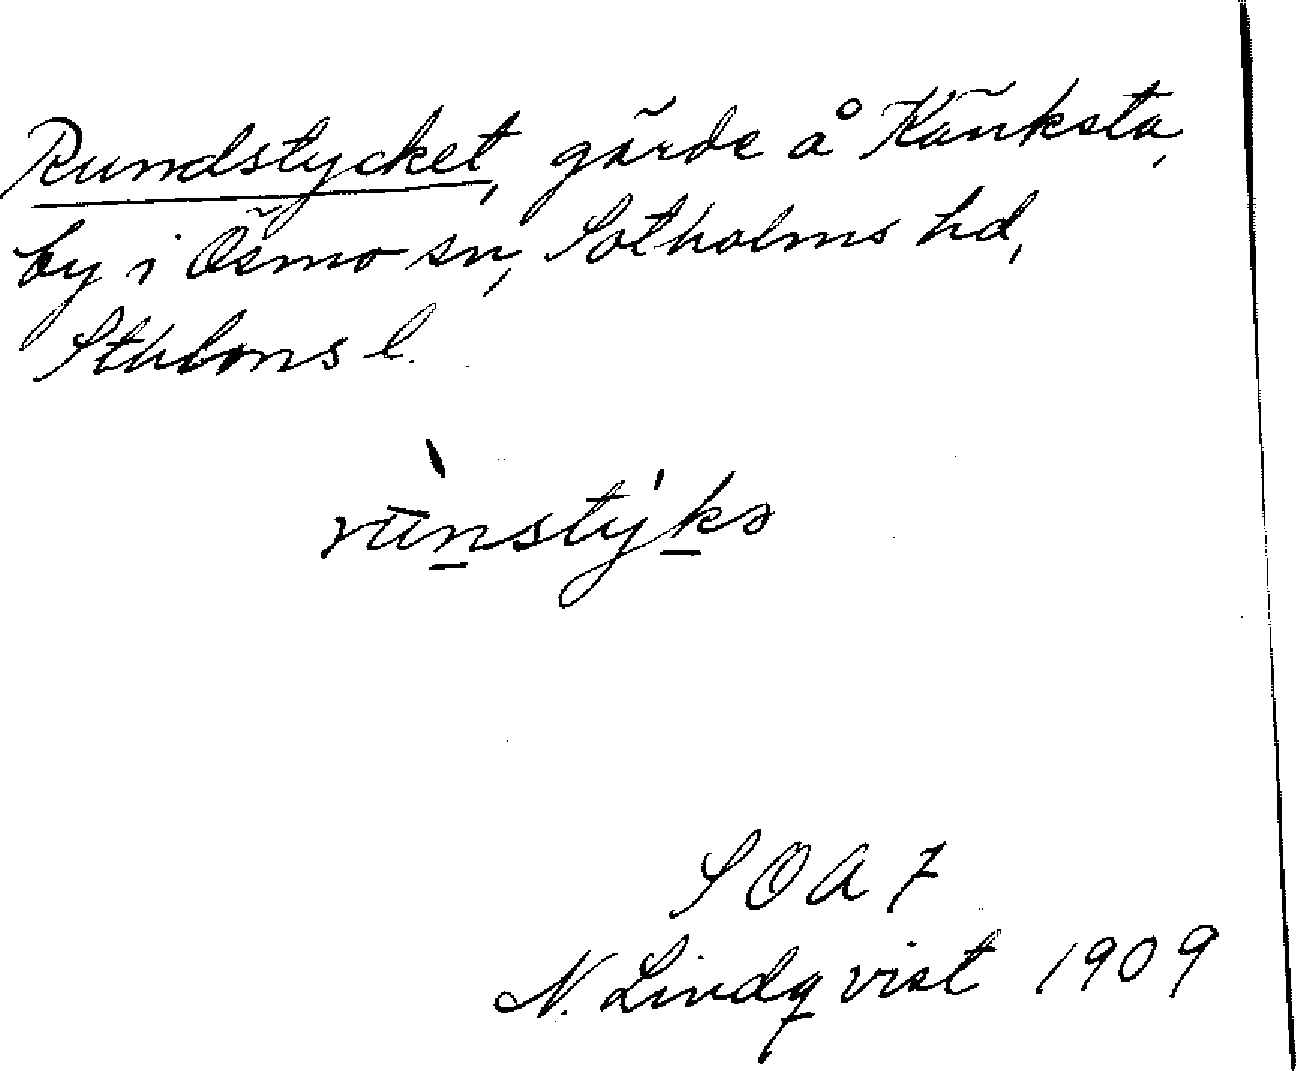 Rundstycket, gärde å Känksta,
by i Ösmo sn, Sotholms hd,
Sthlms l.
rùnstýkə
S O A 7
N. Lindqvist 1909